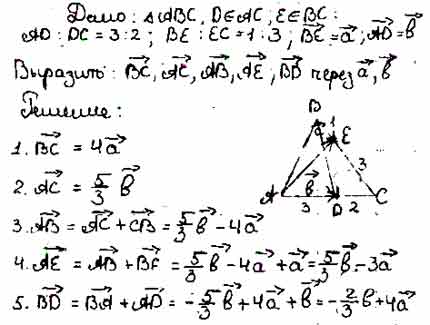 Дано: △ABC, D∈AC; E∈BC:
AD : DC = 3 : 2 ; BE : EC = 1 : 3 ; \vec{BE} = \vec{a} ; \vec{AD} = \vec{b}
Выразить: \vec{BC}, \vec{AC}, \vec{AB}, \vec{AE}, \vec{BD} через \vec{a}, \vec{b}
Решение:
1. \vec{BC} = 4\vec{a}
2. \vec{AC} = \frac{5}{3} \vec{b}
3. \vec{AB} = \vec{AC} + \vec{CB} = \frac{5}{3} \vec{b} - 4\vec{a}
4. \vec{AE} = \vec{AB} + \vec{BE} = \frac{5}{3} \vec{b} - 4\vec{a} + \vec{a} = \frac{5}{3} \vec{b} - 3\vec{a}
5. \vec{BD} = \vec{BA} + \vec{AD} = -\frac{5}{3} \vec{b} + 4\vec{a} + \vec{b} = -\frac{2}{3} \vec{b} + 4\vec{a}
B
1
E
3
\vec{b}
A
3
D
2
C